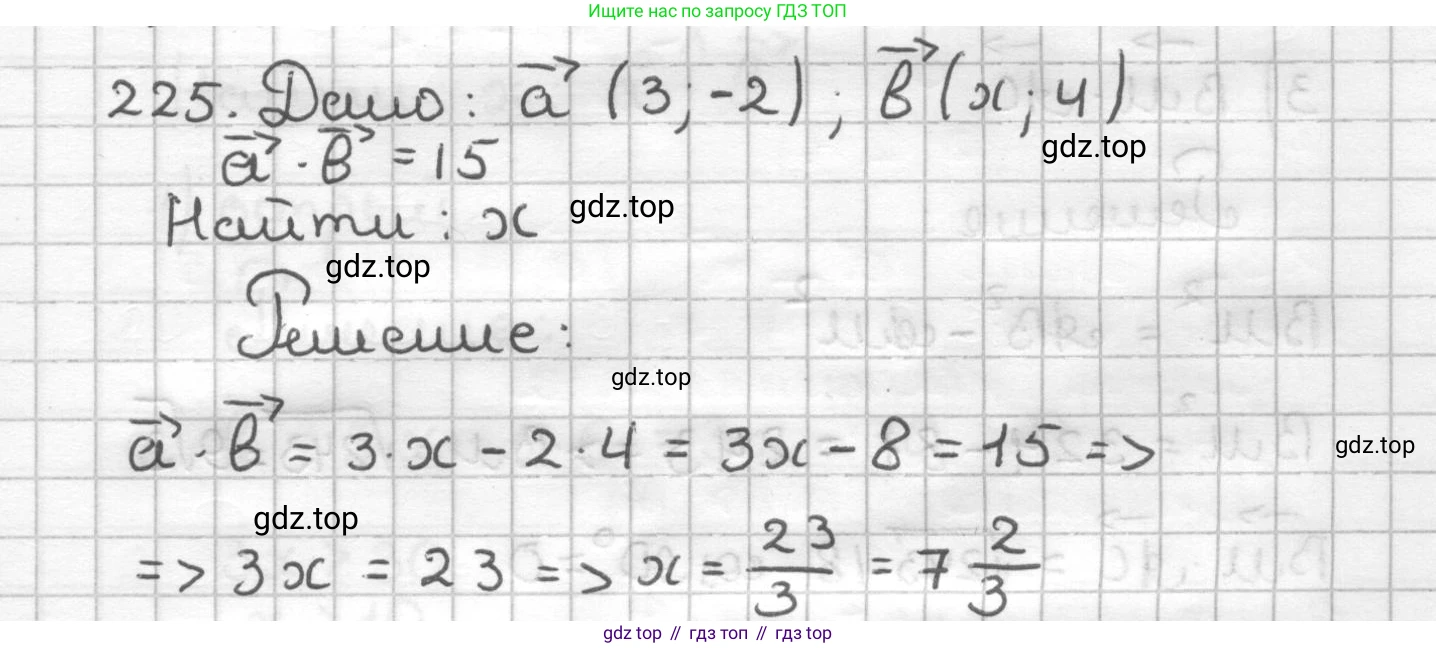 Ищите нас по запросу ГДЗ ТОП
225. Дано: a⃗ (3; -2); b⃗ (x; 4)
gdz.top
a⃗ · b⃗ = 15
Найти: x
gdz.top
gdz.top
Решение:
gdz.top
a⃗ · b⃗ = 3·x - 2·4 = 3x - 8 = 15 =>
gdz.top
gdz.top
=> 3x = 23 => x = 23/3 = 7 2/3
gdz top // гдз топ // gdz top